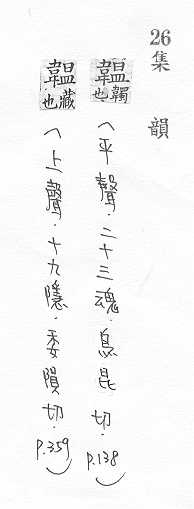 26 集韻
韞韣也(平聲．二十三魂．烏昆切．P.138)
韞藏也(上聲．十九隱．委隕切．P.359)